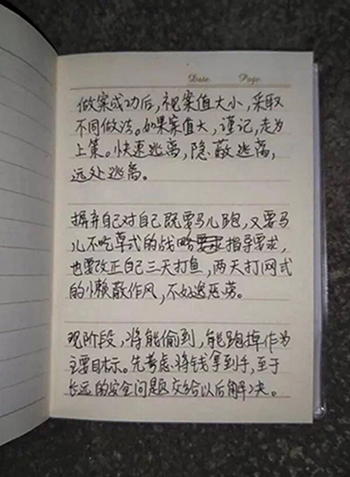 Date.    Page.
做案成功后,视案值大小,采取
不同做法。如果案值大,谨记,走为
上策。快速逃离,隐蔽逃离,
远处逃离。
摒弃自己对自己既要马儿跑,又要马
儿不吃草式的战略指导要求,
也要改正自己三天打鱼,两天打网式
的小懒散作风,不好逸恶劳。
现阶段,将能偷到,能跑掉作为
主要目标。先考虑将钱拿到手,至于
长远的安全问题交给以后解决。